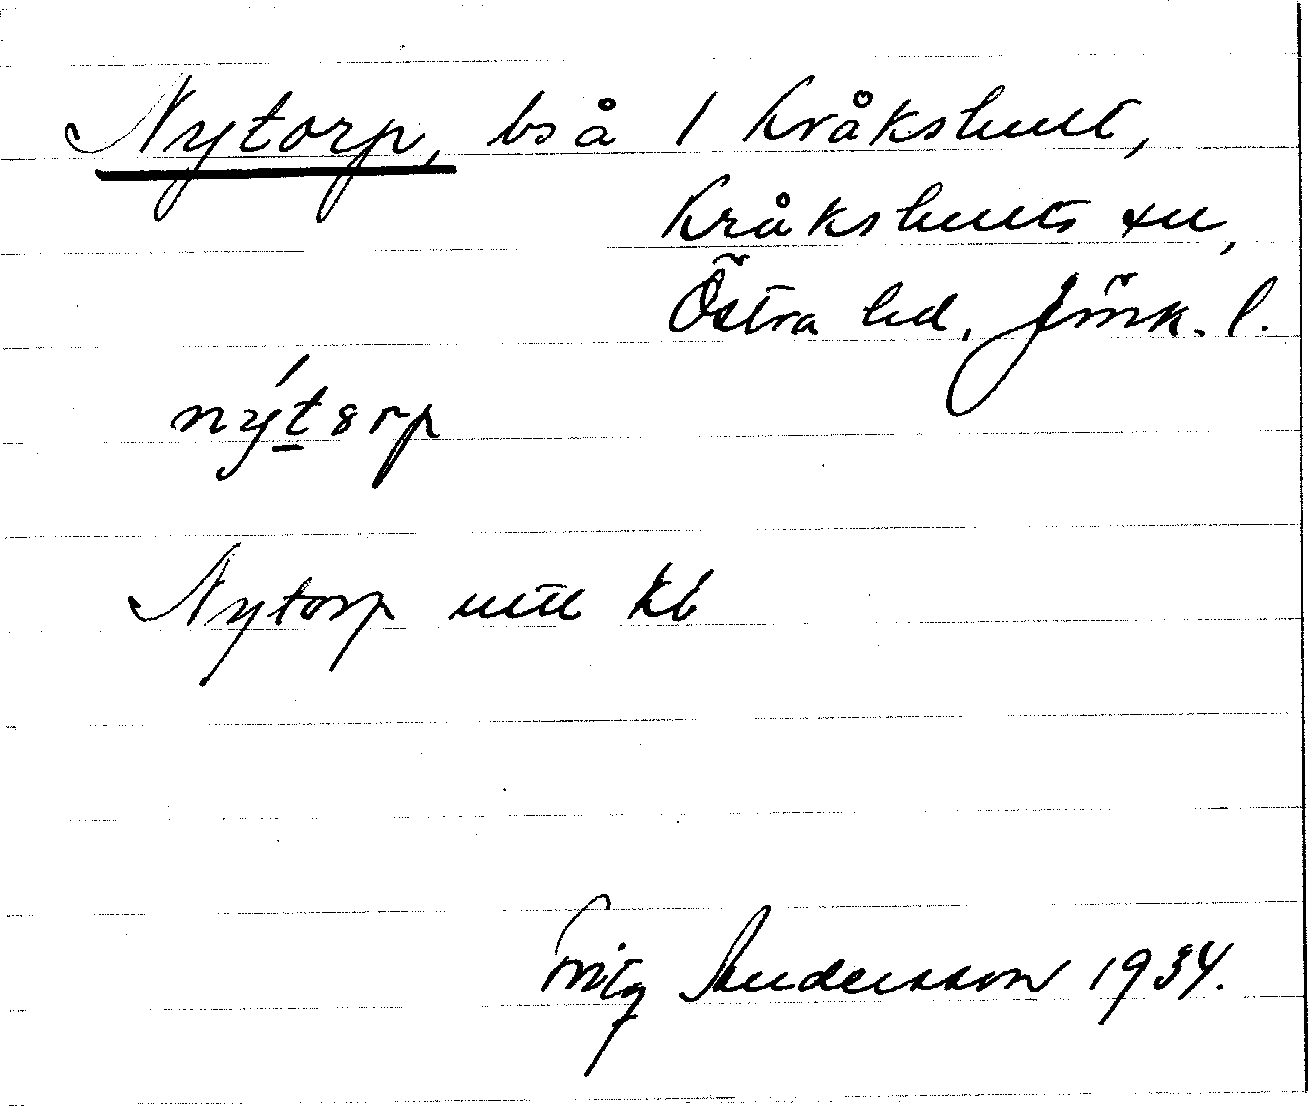 Nytorp, bs å 1 Kråkshult,
Kråkshults sn,
Östra hd, Jönk. l.
nýt8rp
Nytorp Kb
Fritz Andersson 1934.